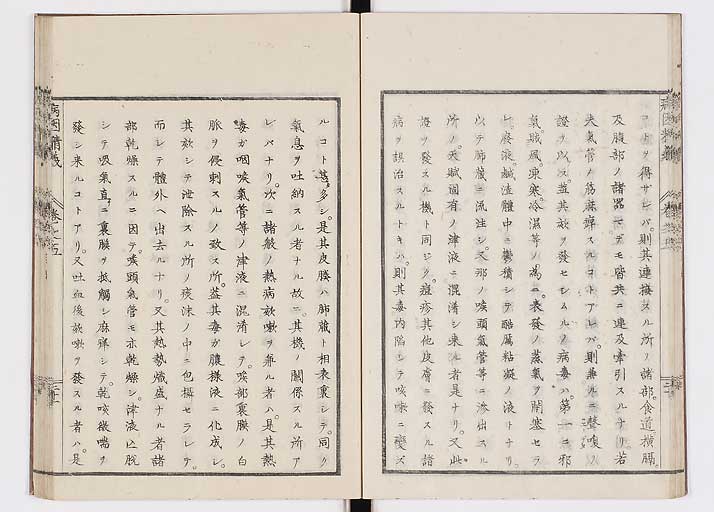 フコトヲ得ザレバ。則其連接スル所ノ諸部。食道横膈
及腹部ノ諸器マデモ皆共ニ連及牽引スルナリ若
夫氣管ノ筋麻痺スルコトアレバ。則兼ルニ聲喉ノ
證ヲ以ス。蓋其欬ヲ發セシムルノ病毒ハ。第一ニ邪
氣賊風凍寒冷濕等ノ為ニ。表發ノ蒸氣ヲ閉塞セラ
レ。廢液鹹渣體中ニ鬱積シテ酷厲粘凝ノ液トナリ。
以テ肺蔵ニ流注シ。又那ノ喉頭氣管等ニ滲出スル
所ノ。天賦固有ノ津液ニ混淆シ来ル者是ナリ。又此
證ヲ發スル機ト同ジク。痘疹其他皮膚ニ發スル諸
病ヲ誤治スルトキハ。則其毒内陥シテ咳嗽ニ變ズ
ルコト甚多シ。是其皮膚ハ肺蔵ト相表裏シテ。同ク
氣息ヲ吐納スル者ナル故ニ。其機ノ關係スル所ア
レバナリ。次ニ諸般ノ熱病欬嗽ヲ兼ル者ハ。是其熱
毒ガ咽喉氣管等ノ津液ニ混淆レテ。喉部裏膜ノ白
脈ヲ侵刺スルノ致ス所。蓋其毒ガ膿様液ニ化成シ。
其欬シテ泄除スル所ノ痰沫ノ中ニ包摂セラレテ。
而レテ體外ヘ出去ルナリ。又其熱勢熾盛ナル者諸
部乾燥スルニ因テ。喉頭氣管モ亦乾燥シ。津液亡脱
シテ吸氣直ニ裏膜ヲ抵觸シ麻痒シテ。乾咳欬喘ヲ
發シ来ルコトアリ。又吐血後欬嗽ヲ發スル者ハ。是
病因精義
巻之五
二十一